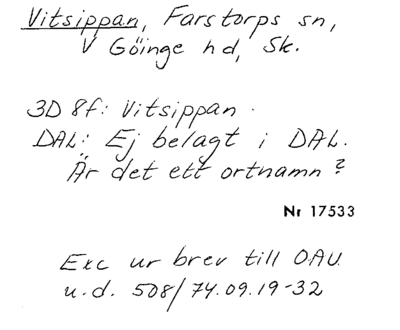 Vitsippan, Farstorps sn,
V Göinge hd, Sk.
3D 8f: Vitsippan.
DAL: Ej belagt i DAL.
Är det ett ortnamn?
Nr 17533
Exc ur brev till OAU
u.d. 508/74.09.19-32